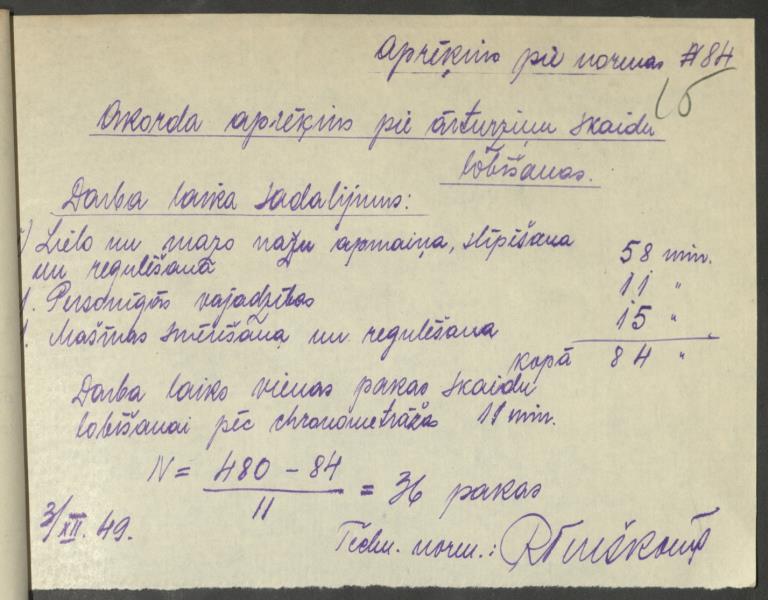 Aprēķins pie normas #84
15
Akorda aprēķins pie ārturziņu skaidu
lobīšanas.
Darba laika sadalijums:
) Lielo un mazo nažu apmaiņa, slīpēšana 58 min.
un regulēšana
. Personīgās vajadzības 11 "
. Mašīnas smērēšana un regulēšana 15 "
kopā 84 "
Darba laiks vienas pakas skaidu
lobīšanai pēc chronometrāžas 11 min.
N = 480 - 84 / 11 = 36 pakas
3/XII. 49.
Techn. norm.: